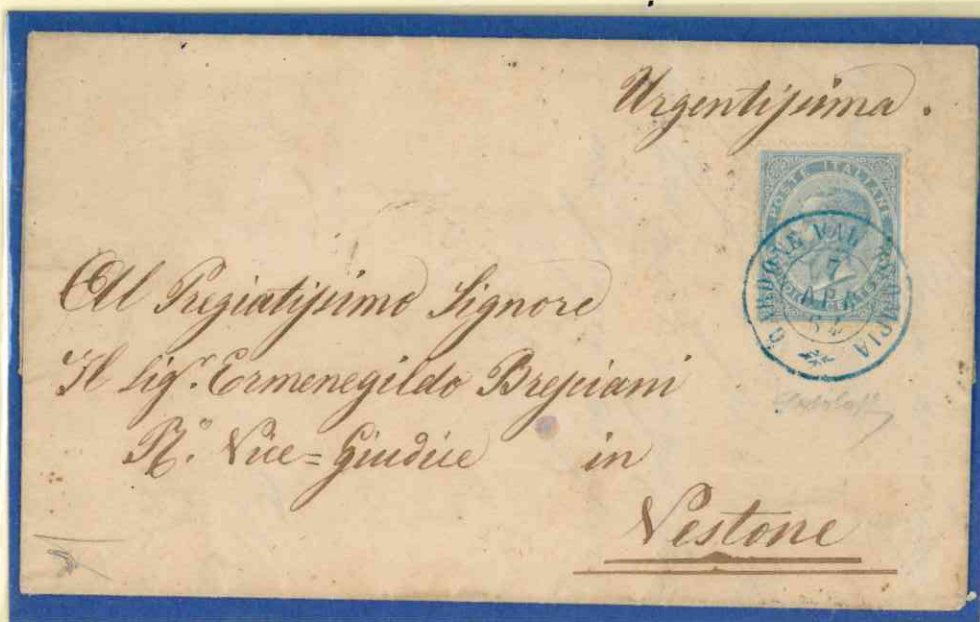 Urgentissima.
POSTE ITALIANE
GARDONE VAL TROMPIA
7
APR
64
Al Pregiatissimo Signore
Il Sigr. Ermenegildo Bresciani
Ro. Vice=Giudice in
Vestone